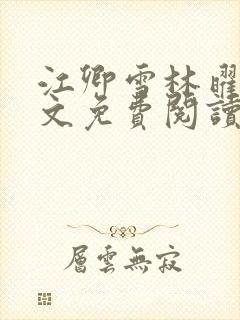 江卿雪林曜
文免費閱讀
層雲無寂